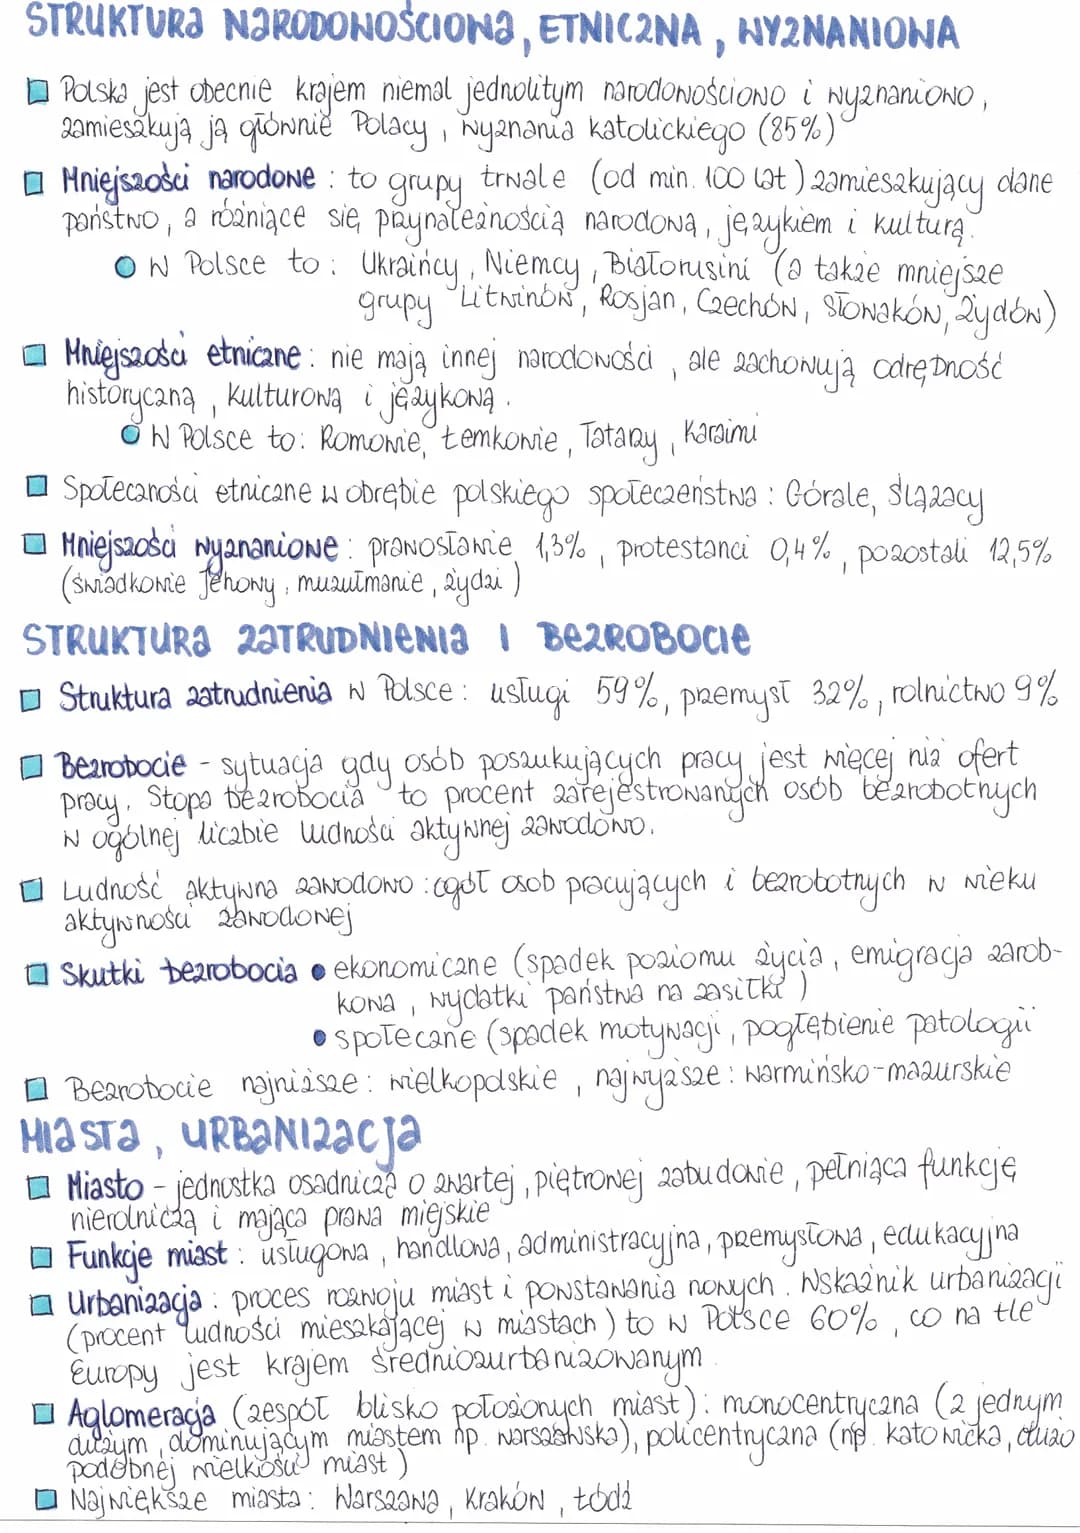 STRUKTURA NARODOWOŚCIOWA, ETNICZNA, WYZNANIOWA
Polska jest obecnie krajem niemal jednolitym narodowościowo i wyznaniowo,
zamieszkują ją głównie Polacy, wyznania katolickiego (85%)
Mniejszości narodowe: to grupy trwale (od min. 100 lat) zamieszkujący dane
państwo, a różniące się przynależnością narodową, językiem i kulturą.
W Polsce to: Ukraińcy, Niemcy, Białorusini (a także mniejsze
grupy Litwinów, Rosjan, Czechów, Słowaków, Żydów)
Mniejszości etniczne: nie mają innej narodowości, ale zachowują odrębność
historyczną, kulturową i językową.
W Polsce to: Romowie, Łemkowie, Tatarzy, Karaimi
Społeczności etniczne w obrębie polskiego społeczeństwa: Górale, Ślązacy
Mniejszości wyznaniowe: prawosławie 1,3%, protestanci 0,4%, pozostali 12,5%
(świadkowie Jehowy, muzułmanie, żydzi)
STRUKTURA ZATRUDNIENIA I BEZROBOCIE
Struktura zatrudnienia w Polsce: usługi 59%, przemysł 32%, rolnictwo 9%
Bezrobocie - sytuacja gdy osób poszukujących pracy jest więcej niż ofert
pracy. Stopa bezrobocia to procent zarejestrowanych osób bezrobotnych
w ogólnej liczbie ludności aktywnej zawodowo.
Ludność aktywna zawodowo: ogół osob pracujących i bezrobotnych w wieku
aktywności zawodowej
Skutki bezrobocia • ekonomiczne (spadek poziomu życia, emigracja zarob-
kowa, wydatki państwa na zasiłki)
• społeczne (spadek motywacji, pogłębienie patologii
Bezrobocie najniższe: wielkopolskie, najwyższe: warmińsko-mazurskie
MIASTA, URBANIZACJA
Miasto - jednostka osadnicza o zwartej, piętrowej zabudowie, pełniąca funkcję
nierolniczą i mająca prawa miejskie
Funkcje miast: usługowa, handlowa, administracyjna, przemysłowa, edukacyjna
Urbanizacja: proces rozwoju miast i powstawania nowych. Wskaźnik urbanizacji
(procent ludności mieszkającej w miastach) to w Polsce 60%, co na tle
Europy jest krajem średniozurbanizowanym.
Aglomeracja (zespół blisko położonych miast): monocentryczna (z jednym
dużym, dominującym miastem np. warszawska), policentryczna (np. katowicka, dużo
podobnej wielkości miast)
Największe miasta: Warszawa, Kraków, Łódź